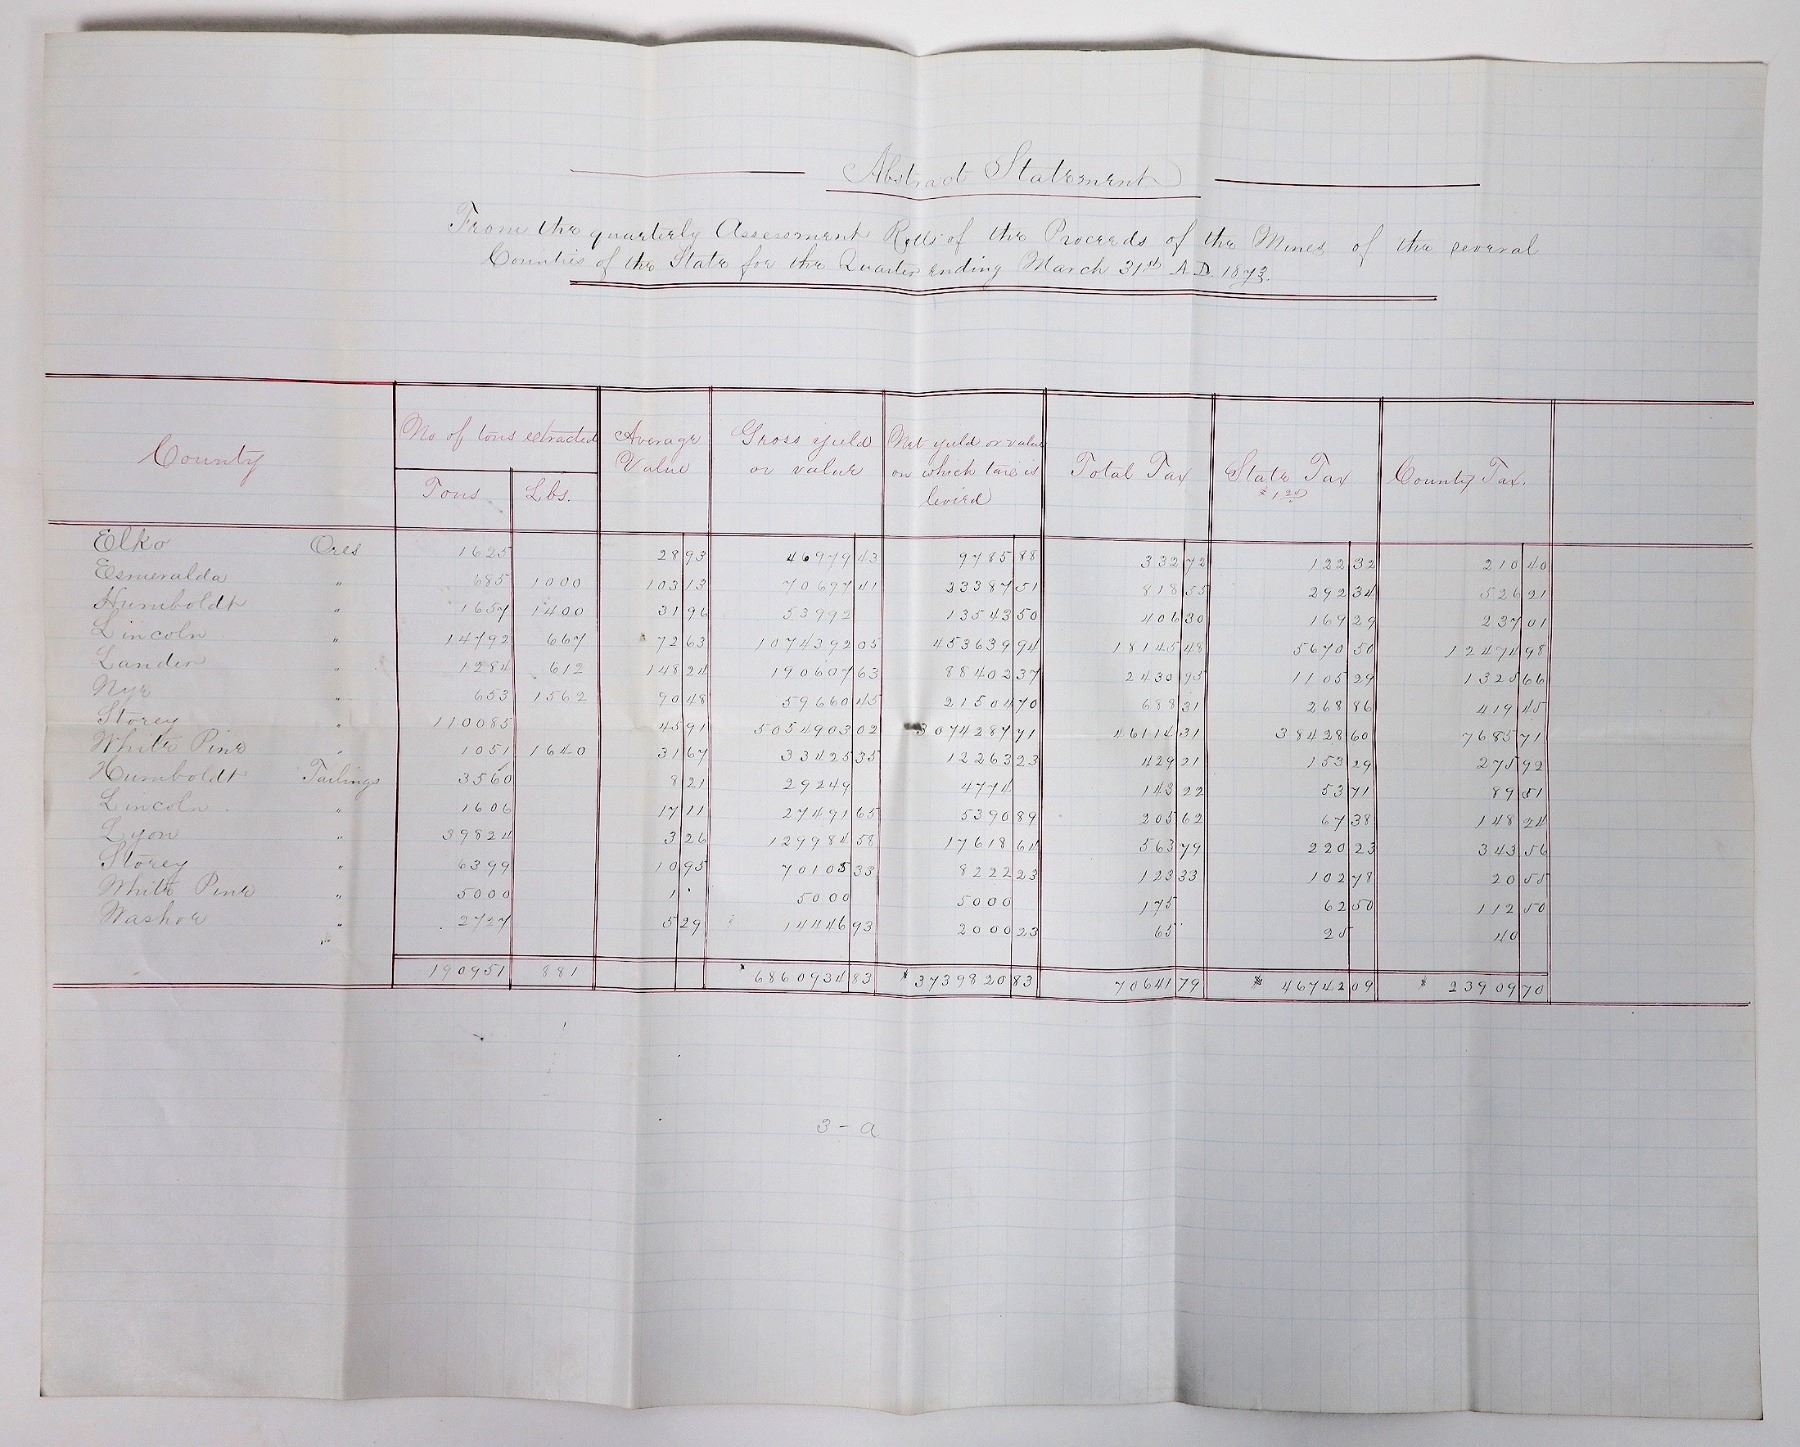 Abstract Statement
From the quarterly Assessment Rolls of the Proceeds of the Mines of the several
Counties of the State for the Quarter ending March 31st A.D. 1873.
County No of tons extracted Average Value Gross yield or value Net yield or value on which tax is levied Total Tax State Tax $1.25 County Tax.
Tons Lbs.
Elko Ores 1625 28 93 46979 43 9785 88 332 72 122 32 210 40
Esmeralda " 685 1000 103 13 70697 41 23387 51 818 55 292 34 526 21
Humboldt " 1657 1400 31 96 53992 13543 50 406 30 169 29 237 01
Lincoln " 14792 667 72 63 1074392 05 453639 94 18145 48 5670 50 12474 98
Lander " 1284 612 148 24 190607 63 88402 37 2430 95 1105 29 1325 66
Nye " 653 1562 90 48 59660 45 21504 70 688 31 268 86 419 45
Storey " 110085 45 91 5054903 02 3074287 71 46114 31 38428 60 7685 71
White Pine " 1051 1640 31 67 33425 35 12263 23 429 21 153 29 275 92
Humboldt Tailings 3560 8 21 29249 4774 143 22 53 71 89 51
Lincoln " 1606 17 11 27491 65 5390 89 205 62 67 38 148 24
Lyon " 39824 3 26 129984 58 17618 64 563 79 220 23 343 56
Storey " 6399 10 95 70105 33 8222 23 123 33 102 78 20 55
White Pine " 5000 1 5000 5000 175 62 50 112 50
Washoe " 2727 5 29 14446 93 2000 23 65 25 40
"
190951 881 $ 6860934 83 $ 3739820 83 70641 79 $ 46742 09 $ 23909 70
3-a